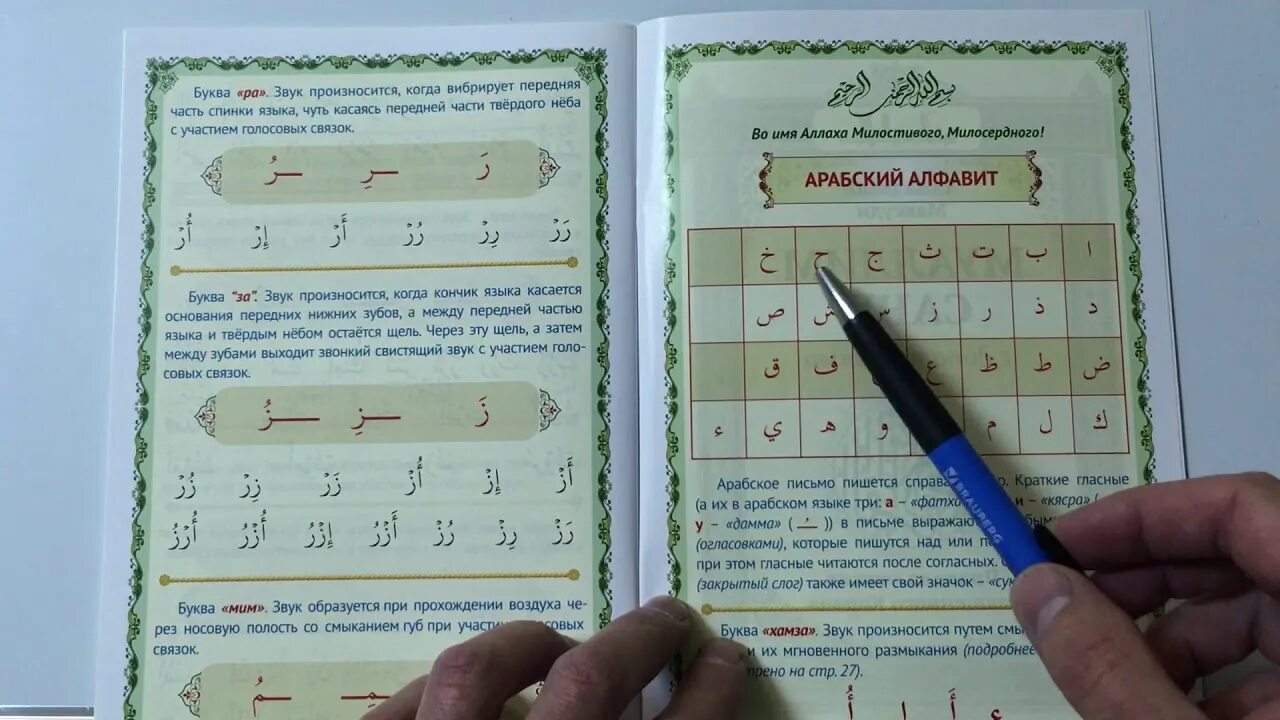 Буква «ра». Звук произносится, когда вибрирует передняя
часть спинки языка, чуть касаясь передней части твёрдого нёба
с участием голосовых связок.
رَ ـــرِ ـــرُ
رَرْ رِرْ رُرْ أَرْ إِرْ أُرْ
Буква "за". Звук произносится, когда кончик языка касается
основания передних нижних зубов, а между передней частью
языка и твёрдым нёбом остаётся щель. Через эту щель, а затем
между зубами выходит звонкий свистящий звук с участием голо-
совых связок.
زَ ـــزِ ـــزُ
أَزْ إِزْ أُزْ زَرْ زِرْ زُرْ
رَزْ رِزْ رُزْ أَزْرُ إِزْرُ أُزْرُ أُرْزُ
Буква «мим». Звук образуется при прохождении воздуха че-
рез носовую полость со смыканием губ при участии голосовых
связок.
ـــمِـ ـــمُ
بسم الله الرحمن الرحيم
Во имя Аллаха Милостивого, Милосердного!
АРАБСКИЙ АЛФАВИТ
ا ب ت ث ج ح خ
د ذ ر ز س ش ص
ض ط ظ ع ف ق
ك ل م و ه ي ء
Арабское письмо пишется справа Краткие гласные
(а их в арабском языке три: а – «фатха и – «кясра» (
у – «дамма» ( ـُ )) в письме выражаю
(огласовками), которые пишутся над или
при этом гласные читаются после согласных.
(закрытый слог) также имеет свой значок –
Буква «хамза». Звук произносится путем
и их мгновенного размыкания (подробнее
на стр. 27).
ء ا أَ أُ
BRAUBERG